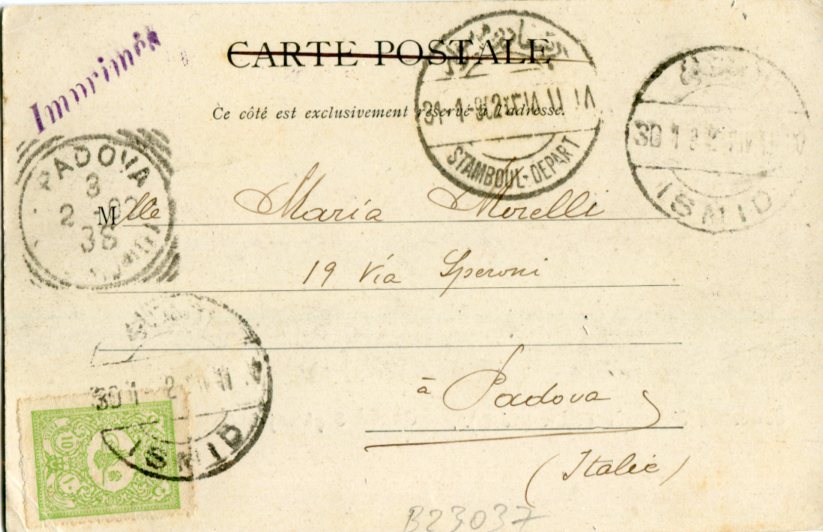 Imprimés
CARTE POSTALE
Ce côté est exclusivement réservé à l'adresse.
STAMBOUL-DEPART
ISNID
PADOVA
3
2
Mlle Maria Morelli
19 Via Speroni
à Padova
(Italie)
ISNID
B23037